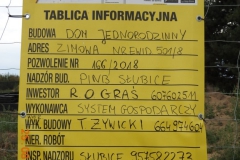 TABLICA INFORMACYJNA
BUDOWA DOM JEDNORODZINNY
ADRES ZIMOWA NR EWID 501/8
POZWOLENIE Nº 166/2018
NADZÓR BUD. PINB SŁUBICE
INWESTOR R. OGRAŚ 607602511
WYKONAWCA SYSTEM GOSPODARCZY
WYK. BUDOWY T. ŻYWICKI 664974604
KIER. ROBÓT
INSP. NADZORU SŁUBICE 957582273